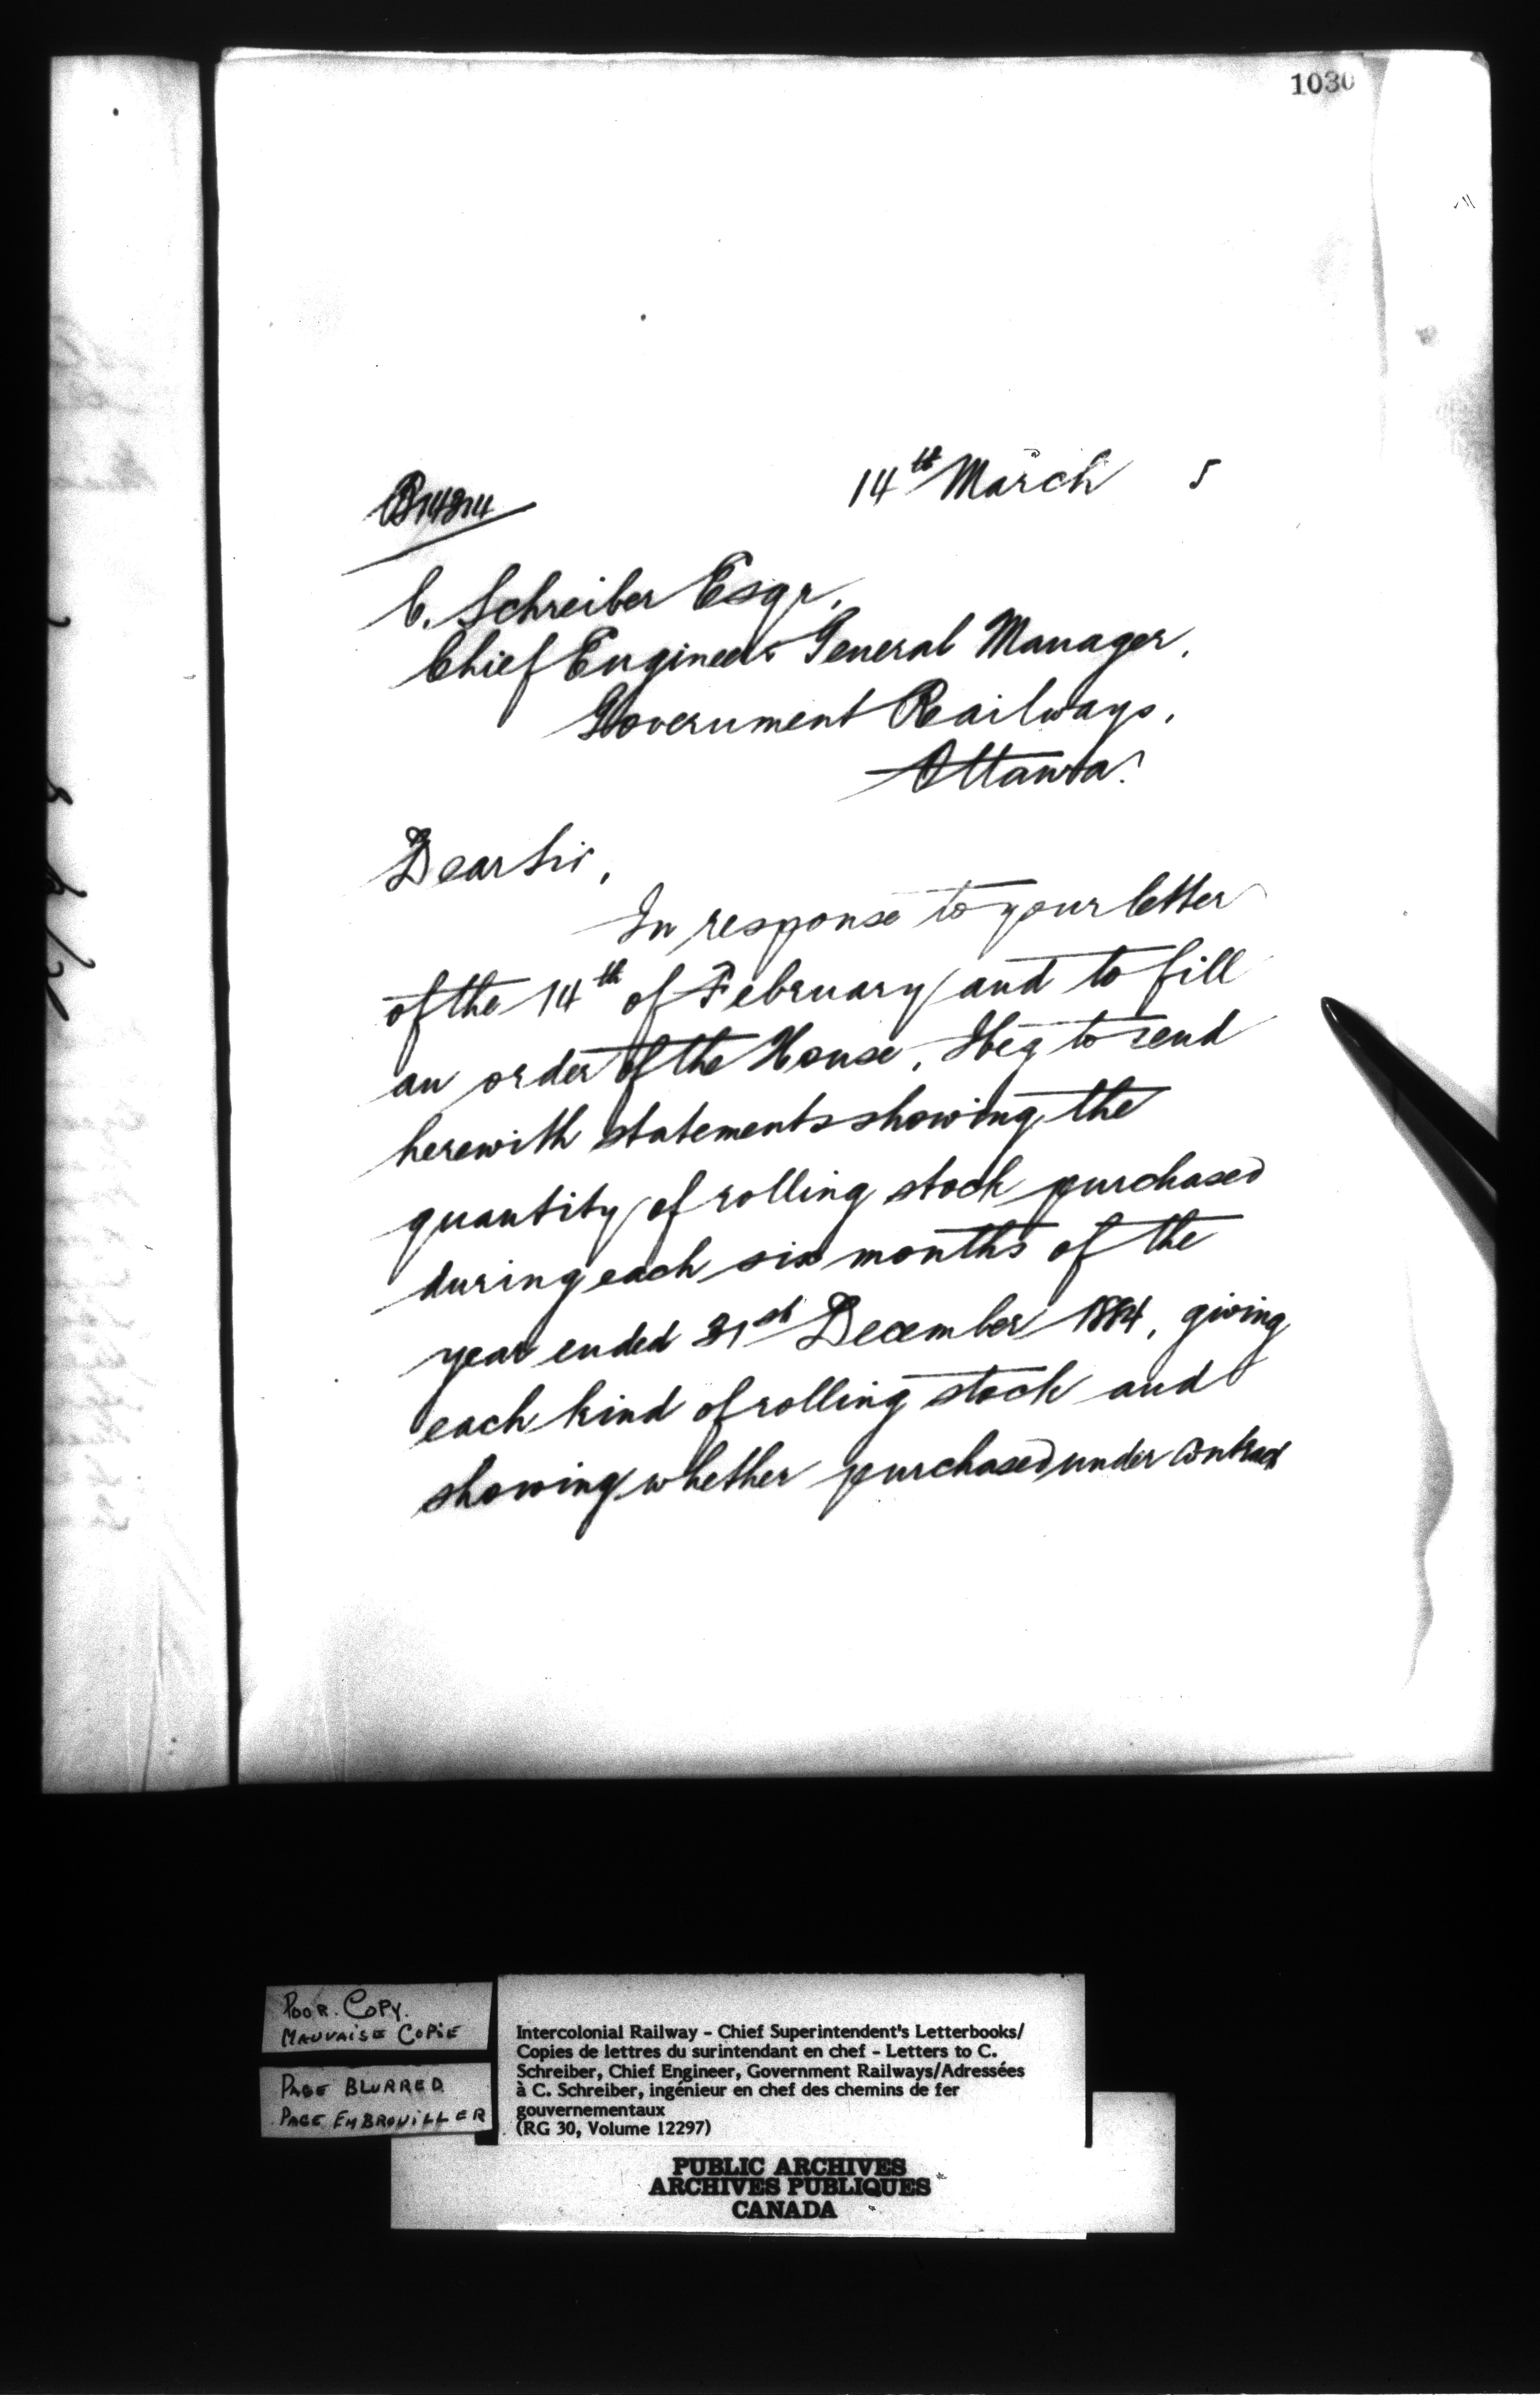 1030
14th March 5
B14814
C. Schreiber Esqr,
Chief Engineer General Manager,
Government Railways,
Ottawa.
Dear Sir,
In response to your letter
of the 14th of February and to fill
an order of the House, I beg to send
herewith statements showing the
quantity of rolling stock purchased
during each six months of the
year ended 31st December 1884, giving
each kind of rolling stock and
showing whether purchased under contract
POOR. COPY.
MAUVAISE COPIE
PAGE BLURRED
PAGE EMBROUILLER
Intercolonial Railway – Chief Superintendent's Letterbooks/
Copies de lettres du surintendant en chef – Letters to C.
Schreiber, Chief Engineer, Government Railways/Adressées
à C. Schreiber, ingénieur en chef des chemins de fer
gouvernementaux
(RG 30, Volume 12297)
PUBLIC ARCHIVES
ARCHIVES PUBLIQUES
CANADA